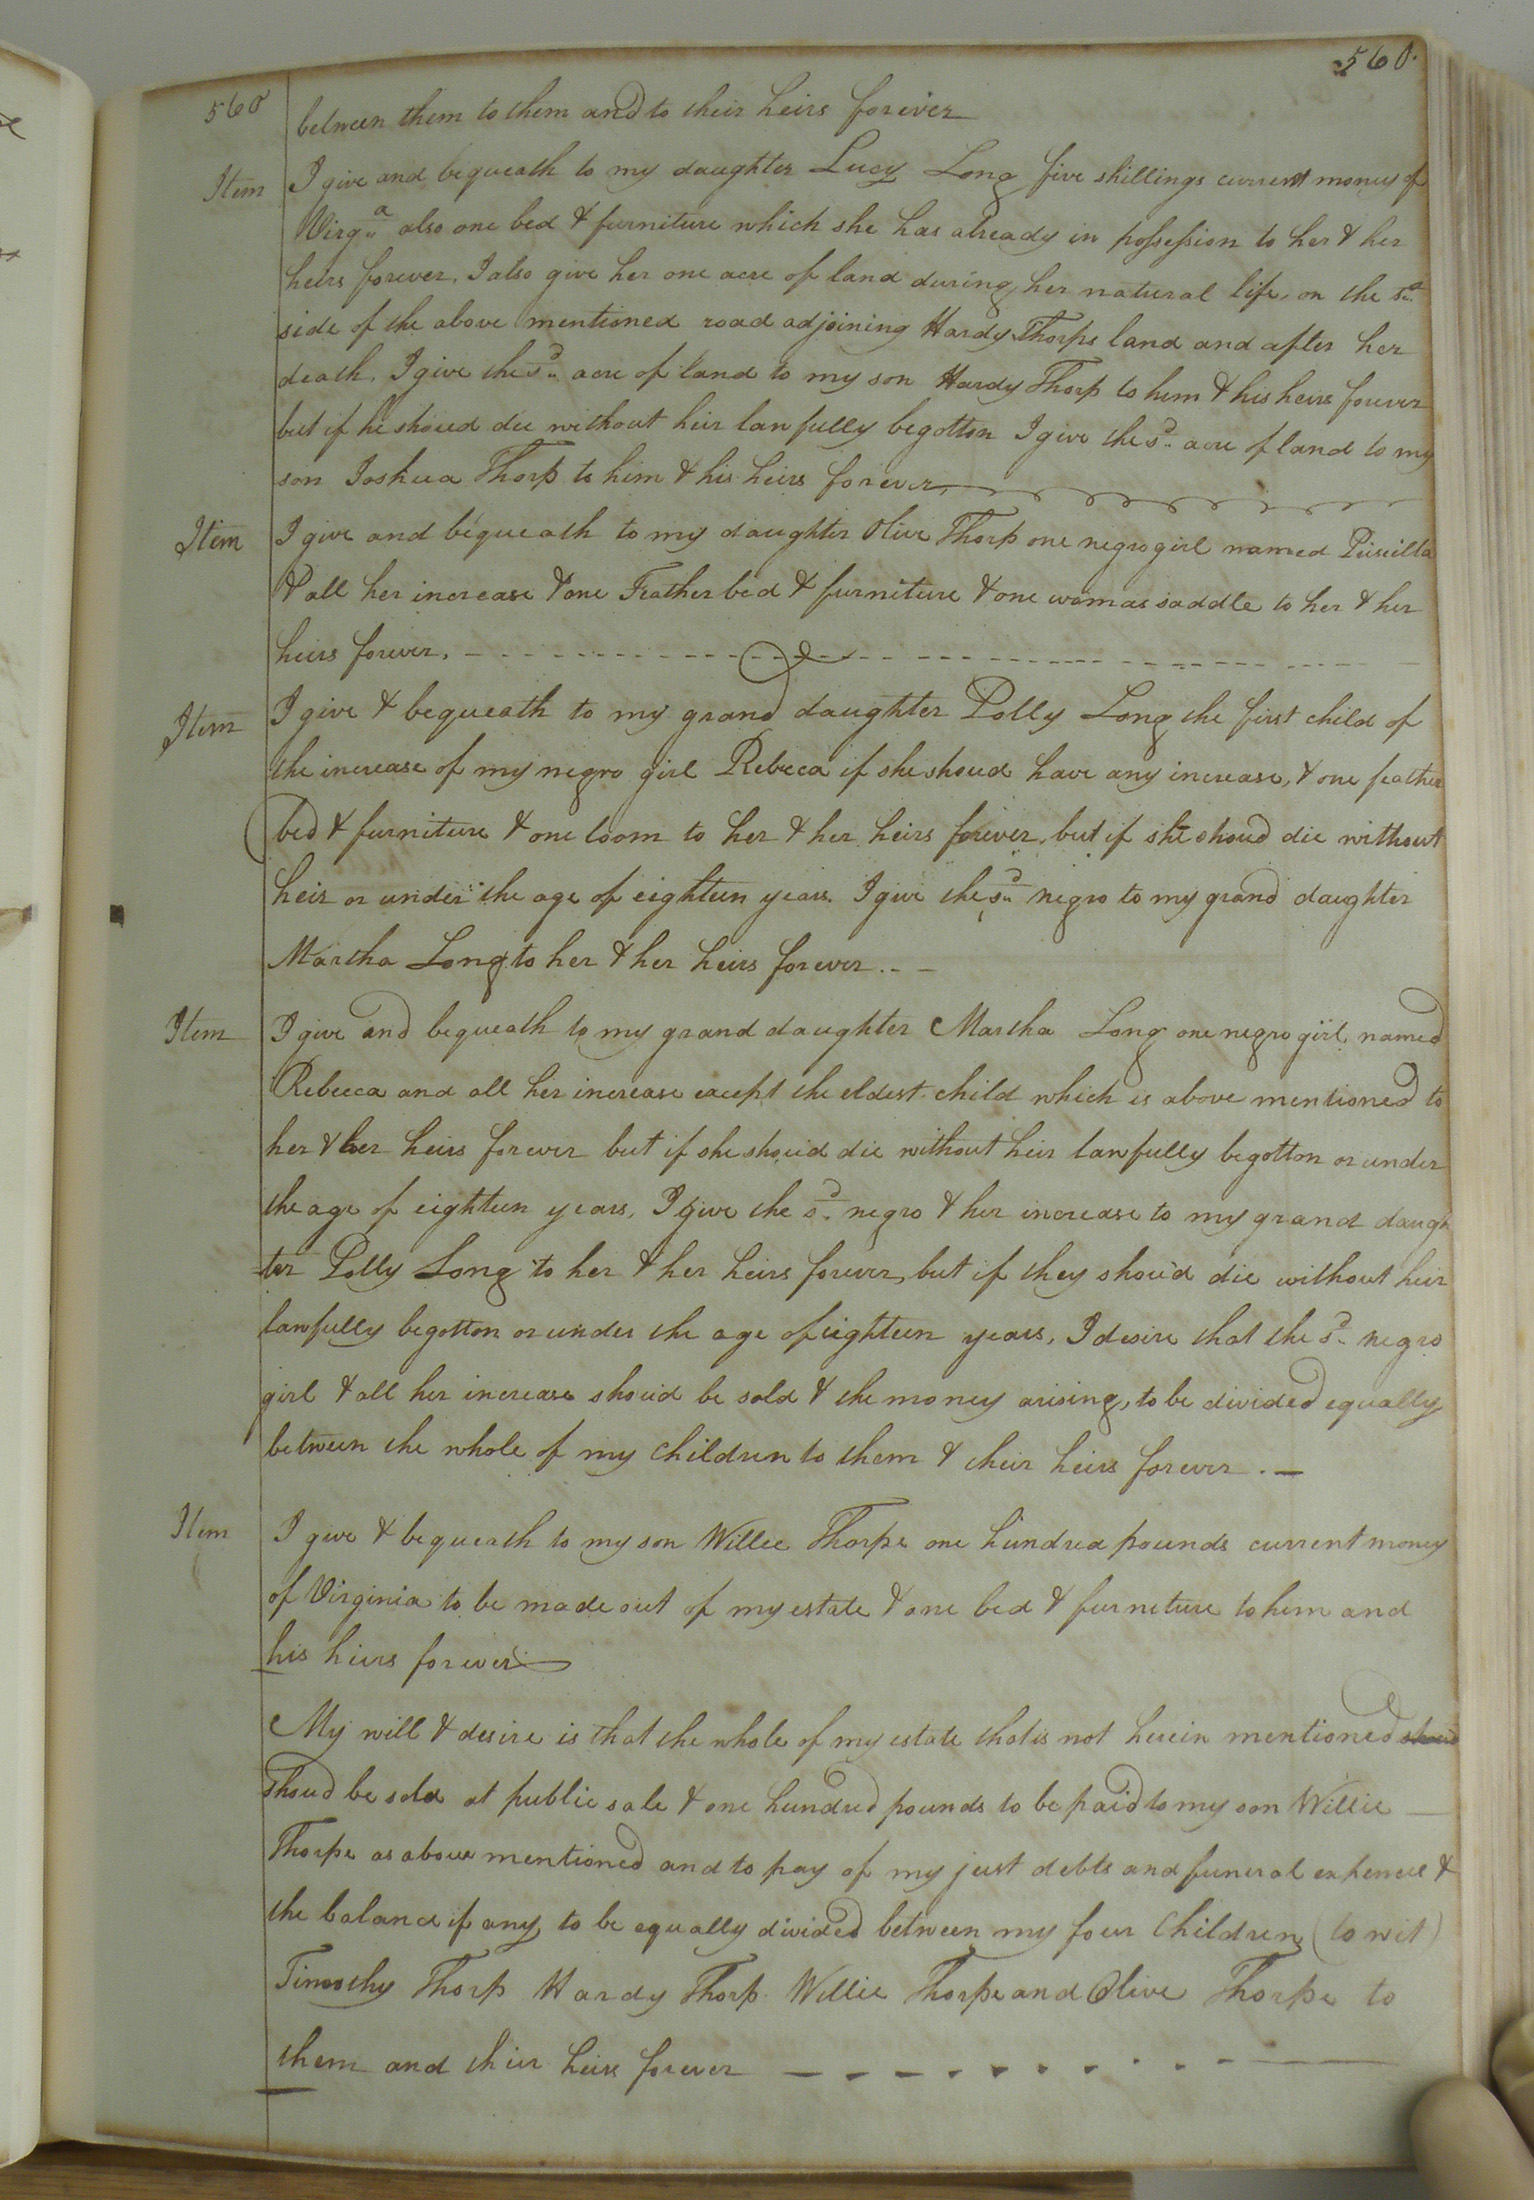 560.
560
between them to them and to their heirs forever
Item I give and bequeath to my daughter Lucy Long five shillings current money of
Virg.a also one bed & furniture which she has already in possession to her & her
heirs forever. I also give her one acre of land during her natural life, on the sd.
side of the above mentioned road adjoining Hardy Thorps land and after her
death. I give the sd. acre of land to my son Hardy Thorp to him & his heirs forever
but if he shoud die without heir lawfully begotton I give the sd. acre of land to my
son Joshua Thorp to him & his heirs forever
Item I give and bequeath to my daughter Olive Thorp one negro girl named Priscilla
& all her increase & one Feather bed & furniture & one womas saddle to her & her
heirs forever.
Item I give & bequeath to my grand daughter Polly Long the first child of
the increase of my negro girl Rebecca if she shoud have any increase, & one feather
bed & furniture & one loom to her & her heirs forever, but if she shoud die without
heir or under the age of eighteen years. I give the sd. negro to my grand daughter
Martha Long to her & her heirs forever
Item I give and bequeath to my grand daughter Martha Long one negro girl named
Rebecca and all her increase except the eldest child which is above mentioned to
her & her heirs forever but if she shou'd die without heir lawfully begotton or under
the age of eighteen years, I give the sd. negro & her increase to my grand daugh
=ter Polly Long to her & her heirs forever, but if they shou'd die without heir
lawfully begotton or under the age of eighteen years, I desire that the sd. negro
girl & all her increase shou'd be sold & the money arising, to be divided equally
between the whole of my children to them & their heirs forever.
Item I give & bequeath to my son Willie Thorpe one hundred pounds current money
of Virginia to be made out of my estate & one bed & furneture to him and
his heirs forever
My will & desire is that the whole of my estate that is not herein mentioned shoud
shoud be sold at public sale & one hundred pounds to be paid to my son Willie
Thorpe as above mentioned and to pay of my just debts and funeral expences &
the balance if any to be equally divided between my four Children (to wit)
Timothy Thorp Hardy Thorp Willie Thorpe and Olive Thorpe to
them and thier heirs forever